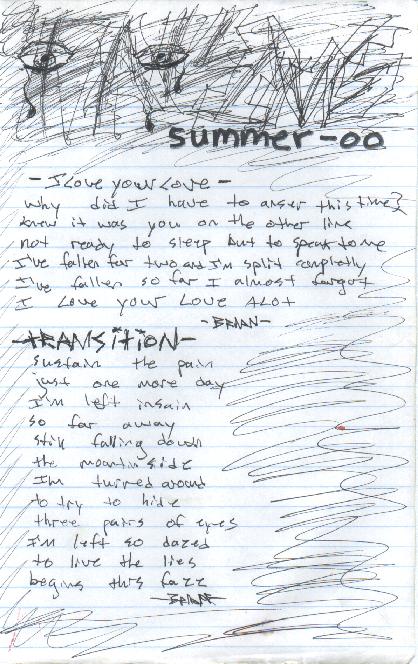 INSANE
summer-00
- I Love your Love -
why did I have to anser this time?
knew it was you on the other line
not ready to sleep but to speak to me
I've fallen for two and I'm split completly
I've fallen so far I almost forgot
I Love your Love ALot
-BRIAN-
-TRANSITION-
sustain the pain
just one more day
I'm left insain
so far away
still falling down
the mountin side
I'm turned around
to try to hide
three pairs of eyes
I'm left so dazed
to live the lies
begins this